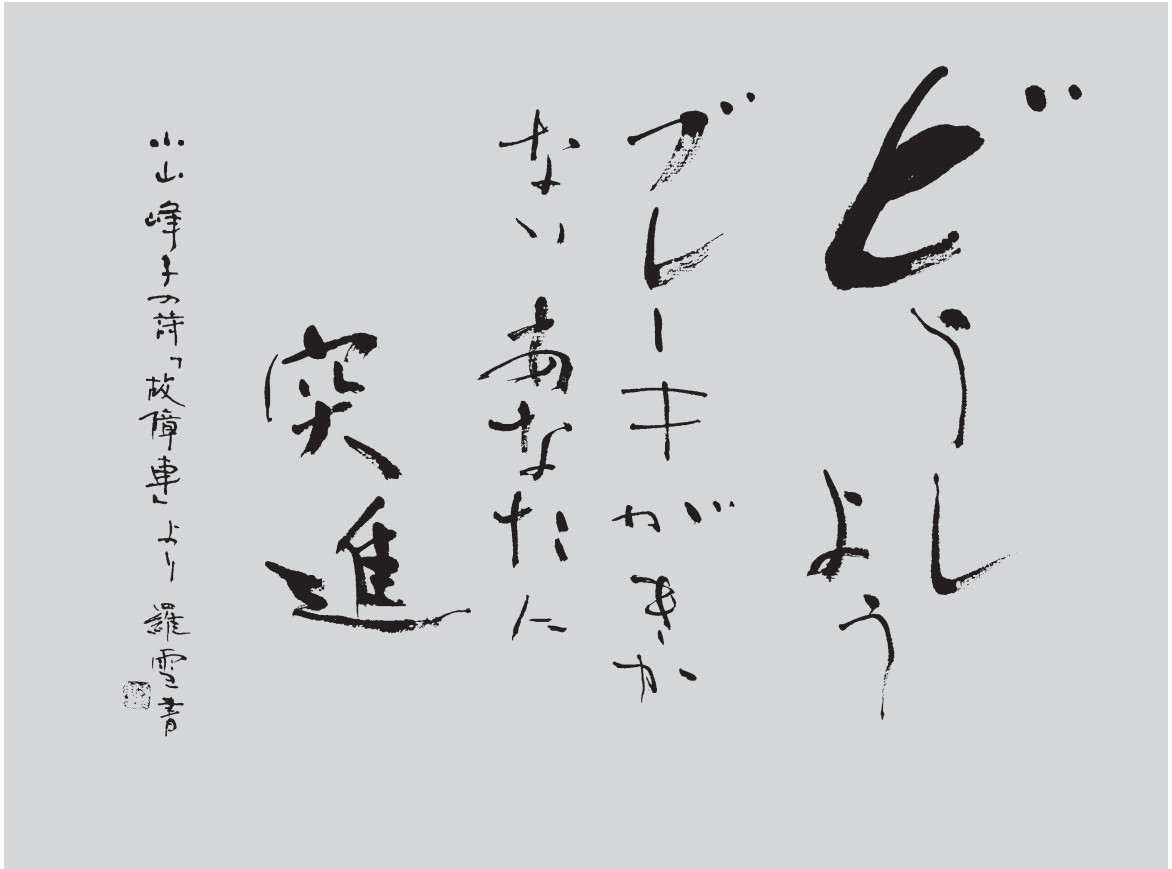 どうしよう
ブレーキがきか
ない あなたに
突進
小山峰子の詩「故障車」より 羅雪書